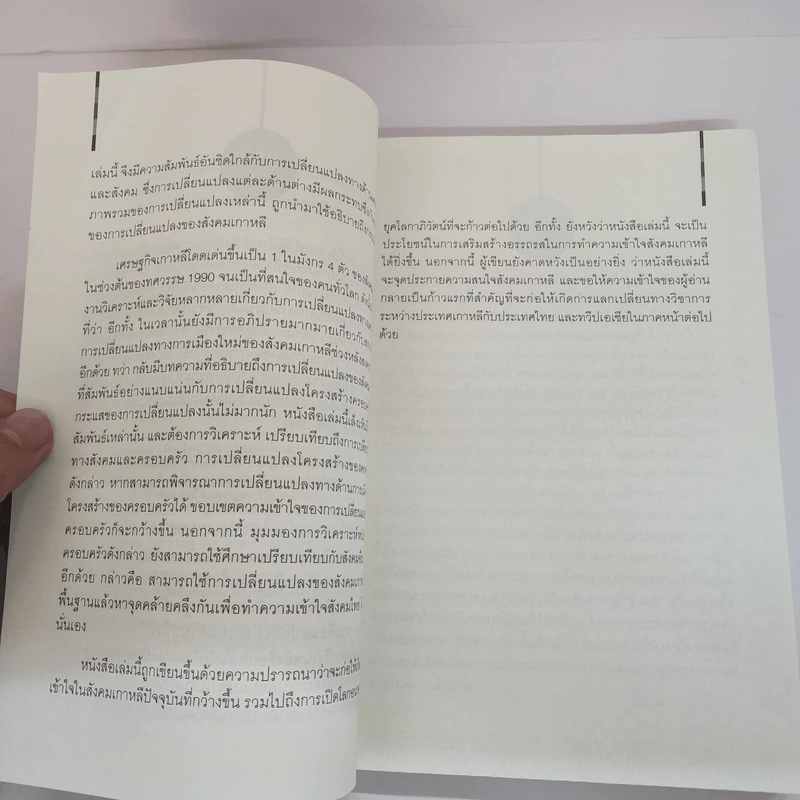 เล่มนี้ จึงมีความสัมพันธ์อันชิดใกล้กับการเปลี่ยนแปลงทางด้าน
และสังคม ซึ่งการเปลี่ยนแปลงแต่ละด้านต่างมีผลกระทบซึ่ง
ภาพรวมของการเปลี่ยนแปลงเหล่านี้ ถูกนำมาใช้อธิบายถึง
ของการเปลี่ยนแปลงของสังคมเกาหลี
เศรษฐกิจเกาหลีโดดเด่นขึ้นเป็น 1 ในมังกร 4 ตัว ของ
ในช่วงต้นของทศวรรษ 1990 จนเป็นที่สนใจของคนทั่วโลก
งานวิเคราะห์และวิจัยหลากหลายเกี่ยวกับการเปลี่ยนแปลงทาง
ที่ว่า อีกทั้ง ในเวลานั้นยังมีการอภิปรายมากมายเกี่ยวกับ
การเปลี่ยนแปลงทางการเมืองใหม่ของสังคมเกาหลีช่วงหลัง
อีกด้วย ทว่า กลับมีบทความที่อธิบายถึงการเปลี่ยนแปลงของ
ที่สัมพันธ์อย่างแนบแน่นกับการเปลี่ยนแปลงโครงสร้าง
กระแสของการเปลี่ยนแปลงนั้นไม่มากนัก หนังสือเล่มนี้เล็งเห็น
สัมพันธ์เหล่านั้น และต้องการวิเคราะห์ เปรียบเทียบถึงการ
ทางสังคมและครอบครัว การเปลี่ยนแปลงโครงสร้างของ
ดังกล่าว หากสามารถพิจารณาการเปลี่ยนแปลงทางด้าน
โครงสร้างของครอบครัวได้ ขอบเขตความเข้าใจของการเปลี่ยน
ครอบครัวก็จะกว้างขึ้น นอกจากนี้ มุมมองการวิเคราะห์
ครอบครัวดังกล่าว ยังสามารถใช้ศึกษาเปรียบเทียบกับสังคม
อีกด้วย กล่าวคือ สามารถใช้การเปลี่ยนแปลงของสังคม
พื้นฐานแล้วหาจุดคล้ายคลึงกันเพื่อทำความเข้าใจสังคมไทย
นั่นเอง
หนังสือเล่มนี้ถูกเขียนขึ้นด้วยความปรารถนาว่าจะก่อให้
เข้าใจในสังคมเกาหลีปัจจุบันที่กว้างขึ้น รวมไปถึงการเปิดโลก
ยุคโลกาภิวัตน์ที่จะก้าวต่อไปด้วย อีกทั้ง ยังหวังว่าหนังสือเล่มนี้ จะเป็น
ประโยชน์ในการเสริมสร้างอรรถรสในการทำความเข้าใจสังคมเกาหลี
ได้ยิ่งขึ้น นอกจากนี้ ผู้เขียนยังคาดหวังเป็นอย่างยิ่ง ว่าหนังสือเล่มนี้
จะจุดประกายความสนใจสังคมเกาหลี และขอให้ความเข้าใจของผู้อ่าน
กลายเป็นก้าวแรกที่สำคัญที่จะก่อให้เกิดการแลกเปลี่ยนทางวิชาการ
ระหว่างประเทศเกาหลีกับประเทศไทย และทวีปเอเชียในภาคหน้าต่อไป
ด้วย